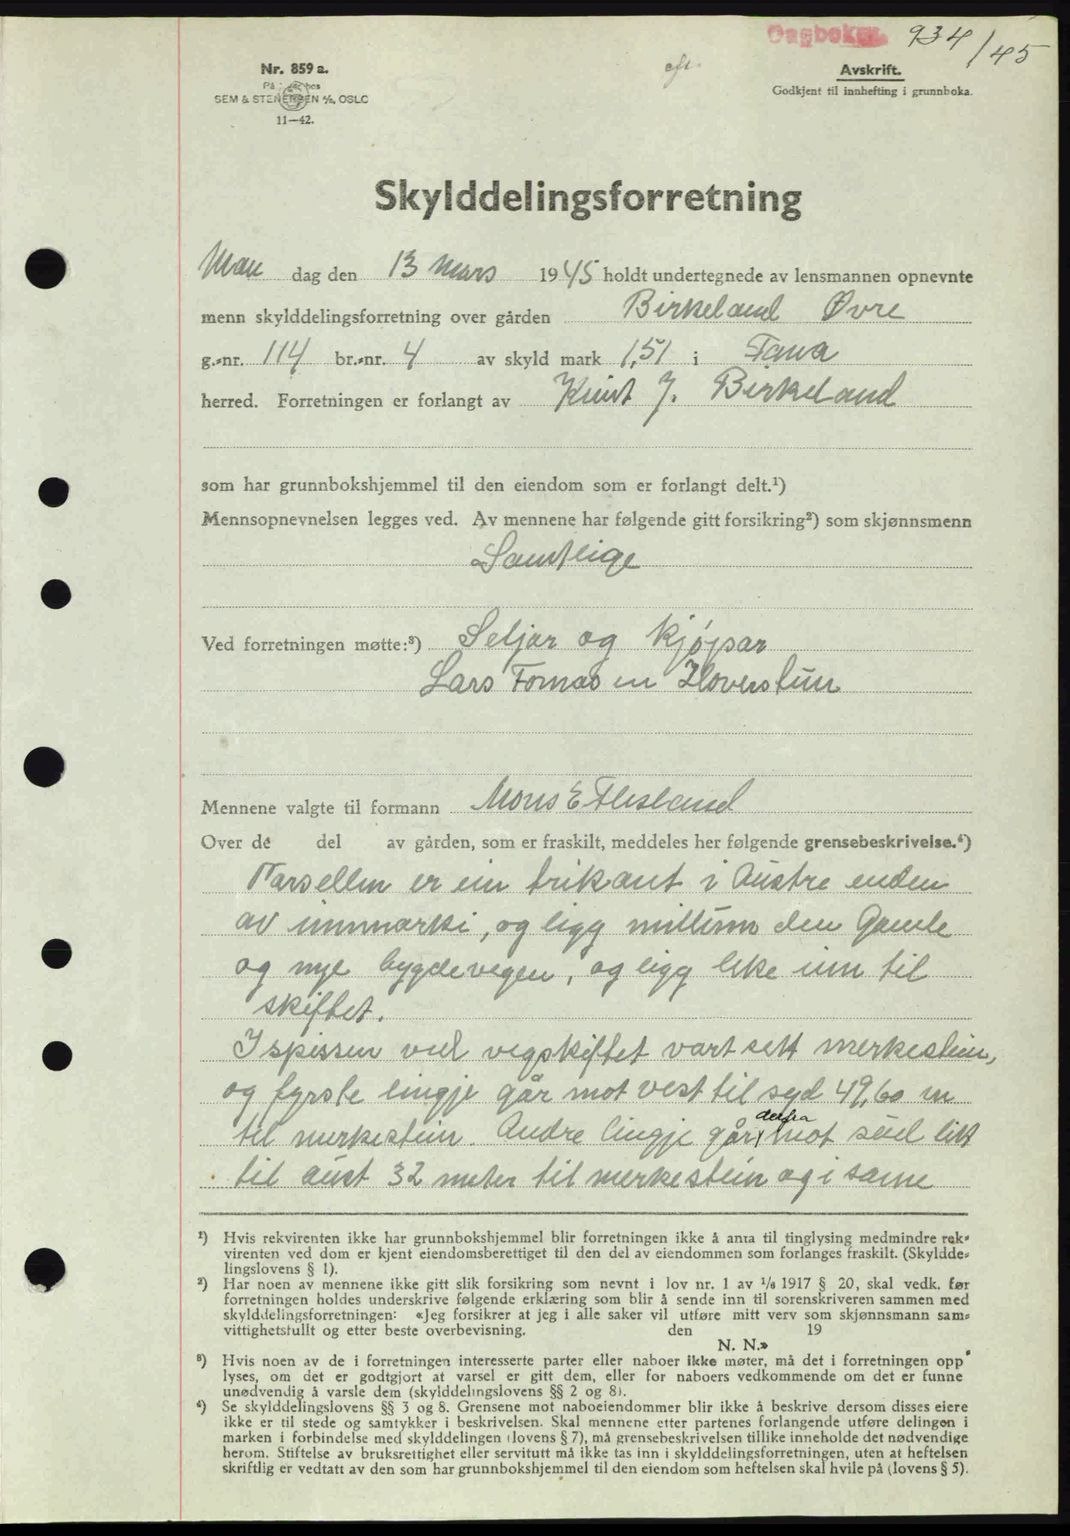 Dagboken 934/45
Nr. 859 a.
SEM & STENERSEN A/S, OSLO
11—42.
Avskrift.
Godkjent til innhefting i grunnboka.
Skylddelingsforretning
Man dag den 13 mars 1945 holdt undertegnede av lensmannen opnevnte
menn skylddelingsforretning over gården Birkeland Øvre
g.-nr. 114 br.-nr. 4 av skyld mark 1,51 i Fana
herred. Forretningen er forlangt av Knut J. Birkeland
som har grunnbokshjemmel til den eiendom som er forlangt delt.¹)
Mennsopnevnelsen legges ved. Av mennene har følgende gitt forsikring²) som skjønnsmenn
Samtlige
Ved forretningen møtte:³) Seljar og kjøpar
Lars Tomas en Hoverstun
Mennene valgte til formann Mons E Flesland
Over de del av gården, som er fraskilt, meddeles her følgende grensebeskrivelse.⁴)
Parsellen er ein trikant i Austre enden
av innmarki, og ligg millum den Gamle
og nye bygdevegen, og ligg like inn til
skiftet.
I spissen ved vegskiftet vart sett merkestein,
og fyrste lingje går mot vest til syd 49,60 m
til merkestein. Andre lingje går derfra mot süd litt
til aust 32 meter til merkestein og i same
¹) Hvis rekvirenten ikke har grunnbokshjemmel blir forretningen ikke å anta til tinglysing medmindre rek-
virenten ved dom er kjent eiendomsberettiget til den del av eiendommen som forlanges fraskilt. (Skyldde-
lingslovens § 1).
²) Har noen av mennene ikke gitt slik forsikring som nevnt i lov nr. 1 av 1/8 1917 § 20, skal vedk. før
forretningen holdes underskrive følgende erklæring som blir å sende inn til sorenskriveren sammen med
skylddelingsforretningen: «Jeg forsikrer at jeg i alle saker vil utføre mitt verv som skjønnsmann sam-
vittighetsfullt og etter beste overbevisning. den 19
N. N.»
³) Hvis noen av de i forretningen interesserte parter eller naboer ikke møter, må det i forretningen opp
lyses, om det er godtgjort at varsel er gitt dem, eller for naboers vedkommende om det er funne
unødvendig å varsle dem (skylddelingslovens §§ 2 og 8).
⁴) Se skylddelingslovens §§ 3 og 8. Grensene mot naboeiendommer blir ikke å beskrive dersom disses eiere
ikke er til stede og samtykker i beskrivelsen. Skal mennene etter partenes forlangende utføre delingen i
marken i forbindelse med skylddelingen (lovens § 7), må grensebeskrivelsen tillike inneholde det nødvendige
herom. Stiftelse av bruksrettighet eller servitutt må ikke tas inn i skylddelingsforretningen, uten at heftelsen
skriftlig er vedtatt av den som har grunnbokshjemmel til den eiendom som heftelsen skal hvile på (lovens § 5).